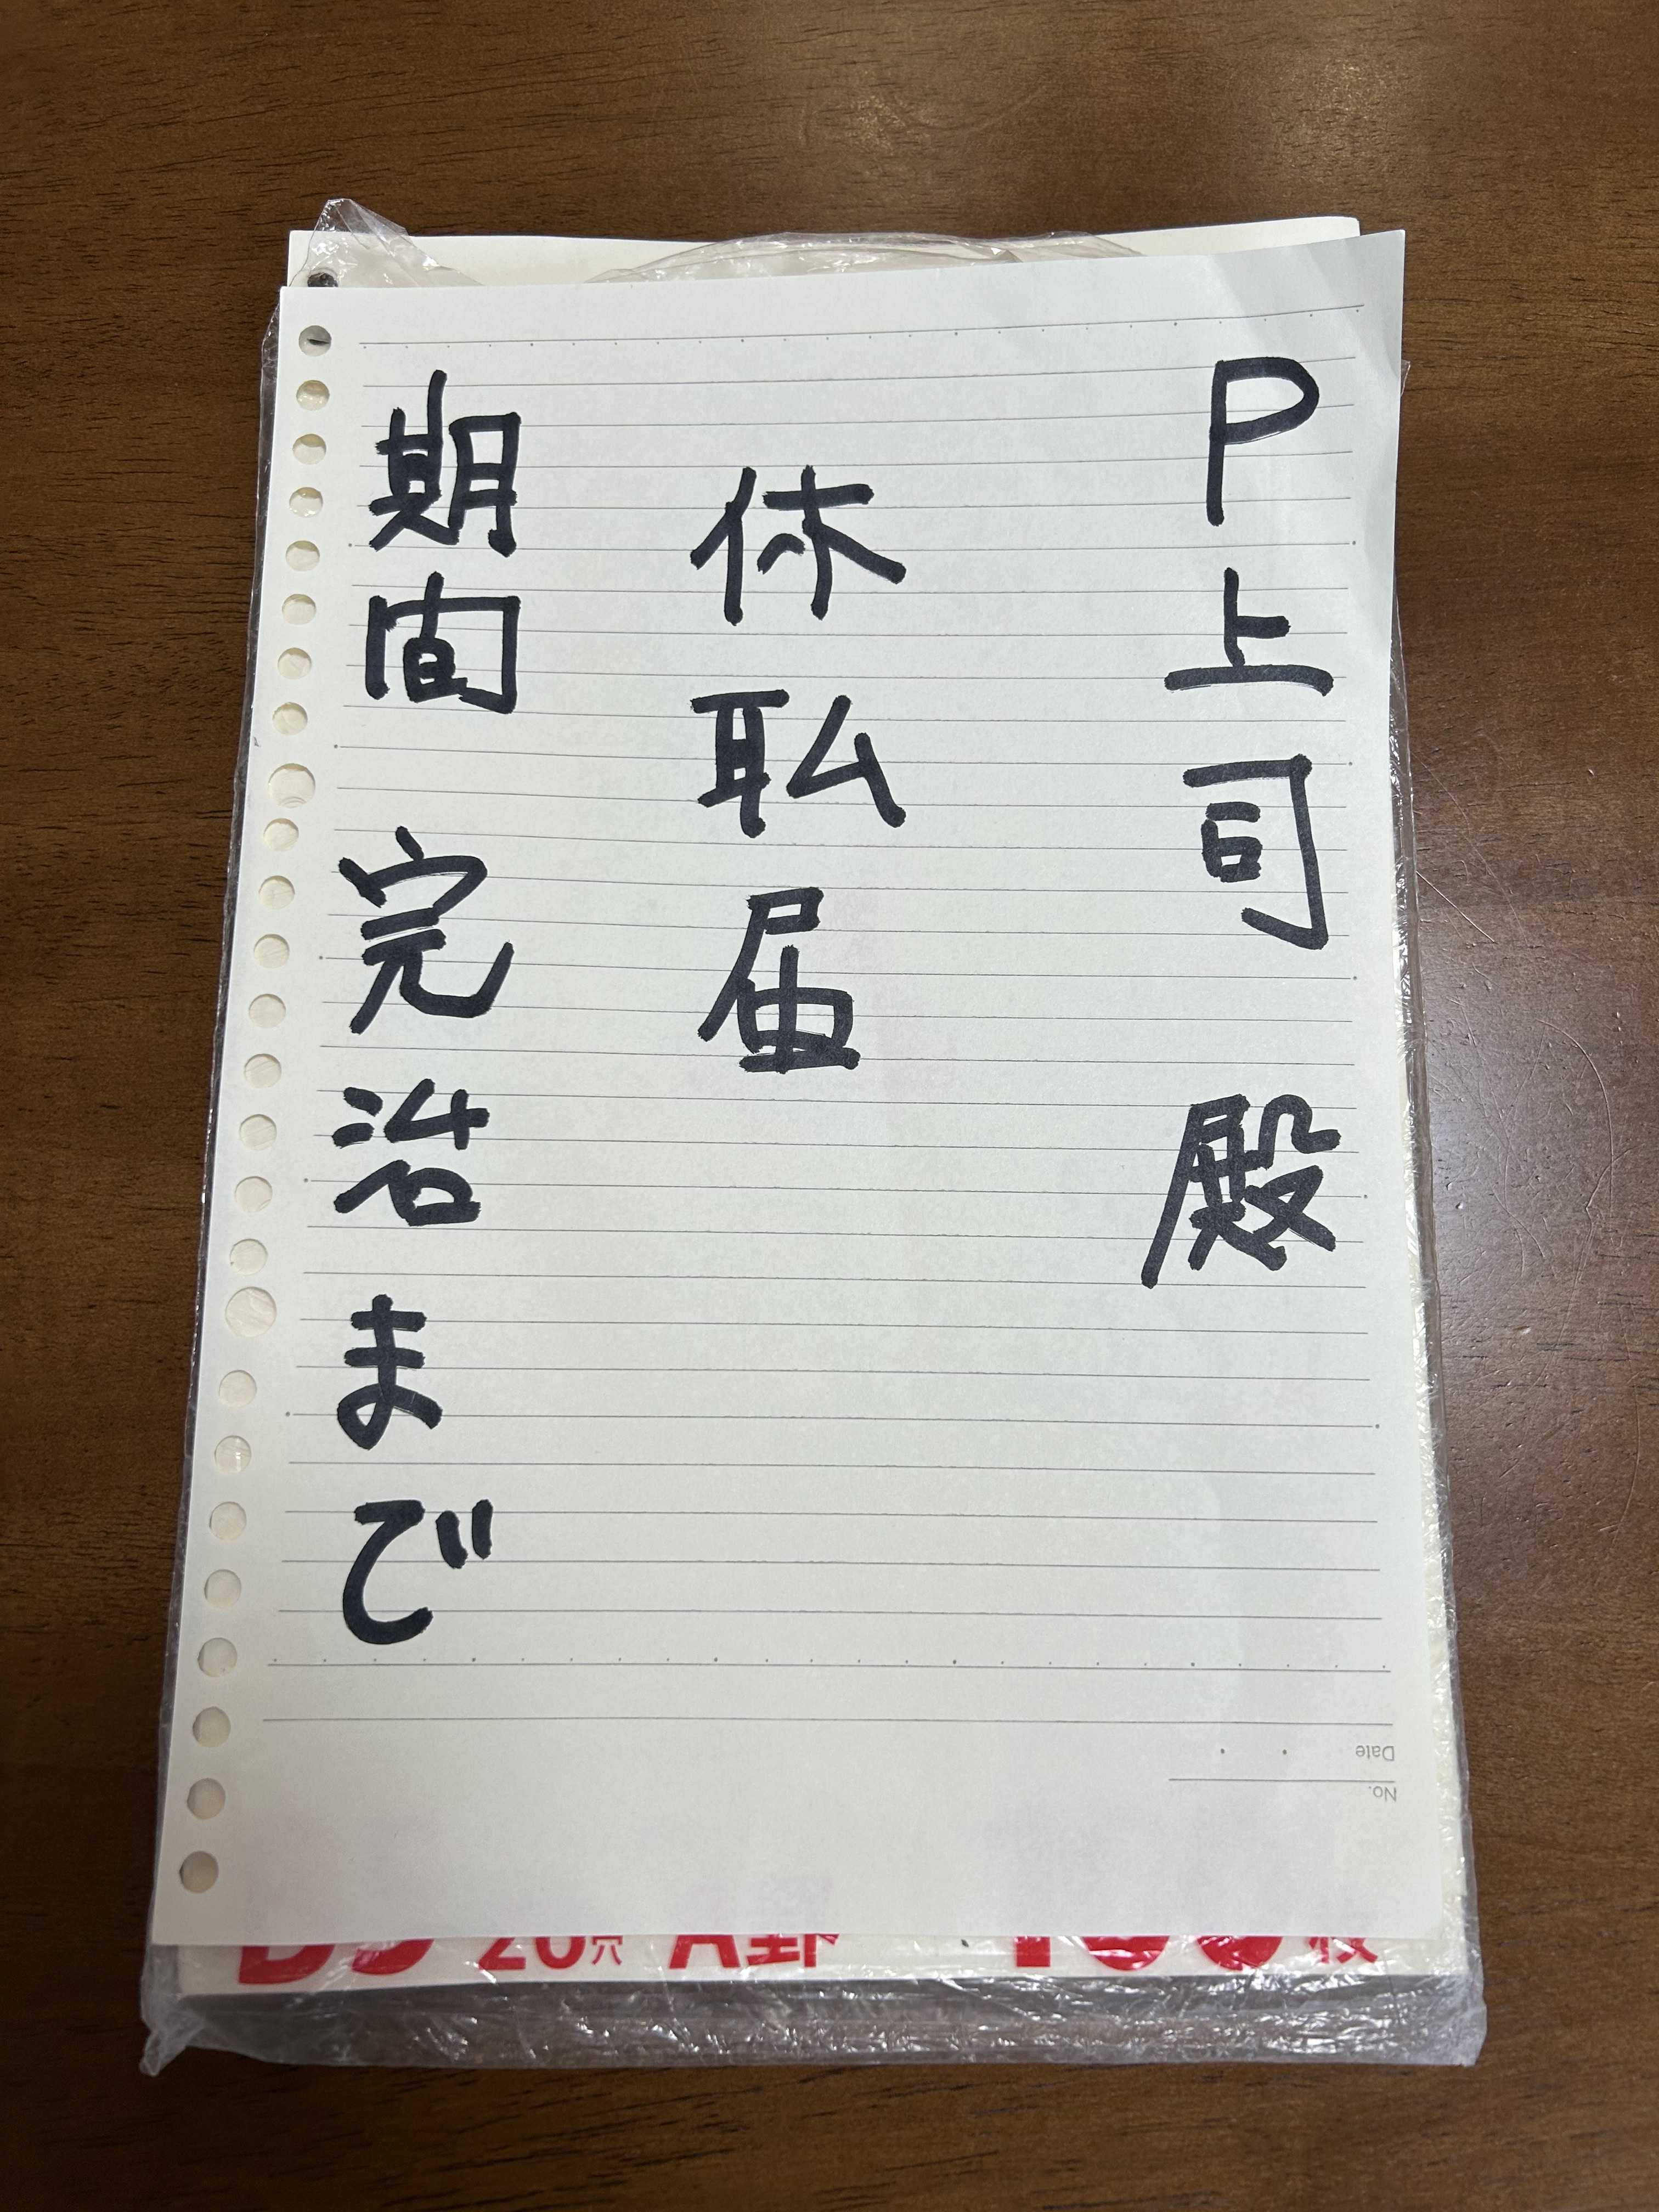 P上司 殿
休耺届
期間 完治まで
Date
No.
20穴 A罫 100枚